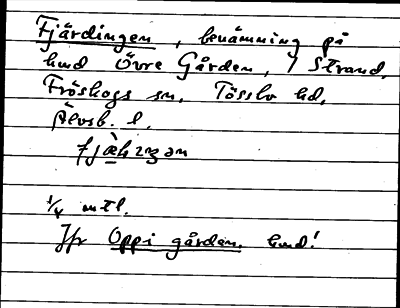 Fjärdingen, benämning på
hmd Övre Gården, 7 Strand,
Fröskogs sn, Tösslo hd,
Älvsb. l.
1/4 mtl.
Jfr Oppi gården, hmd!